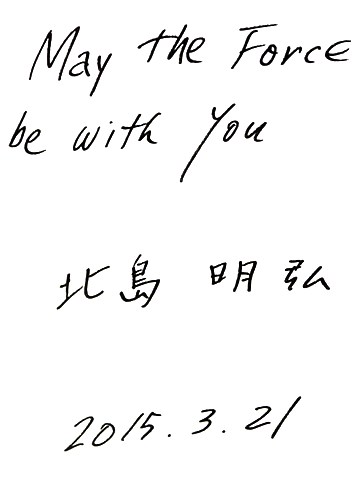 May the Force
be with You
北島 明弘
2015.3.21